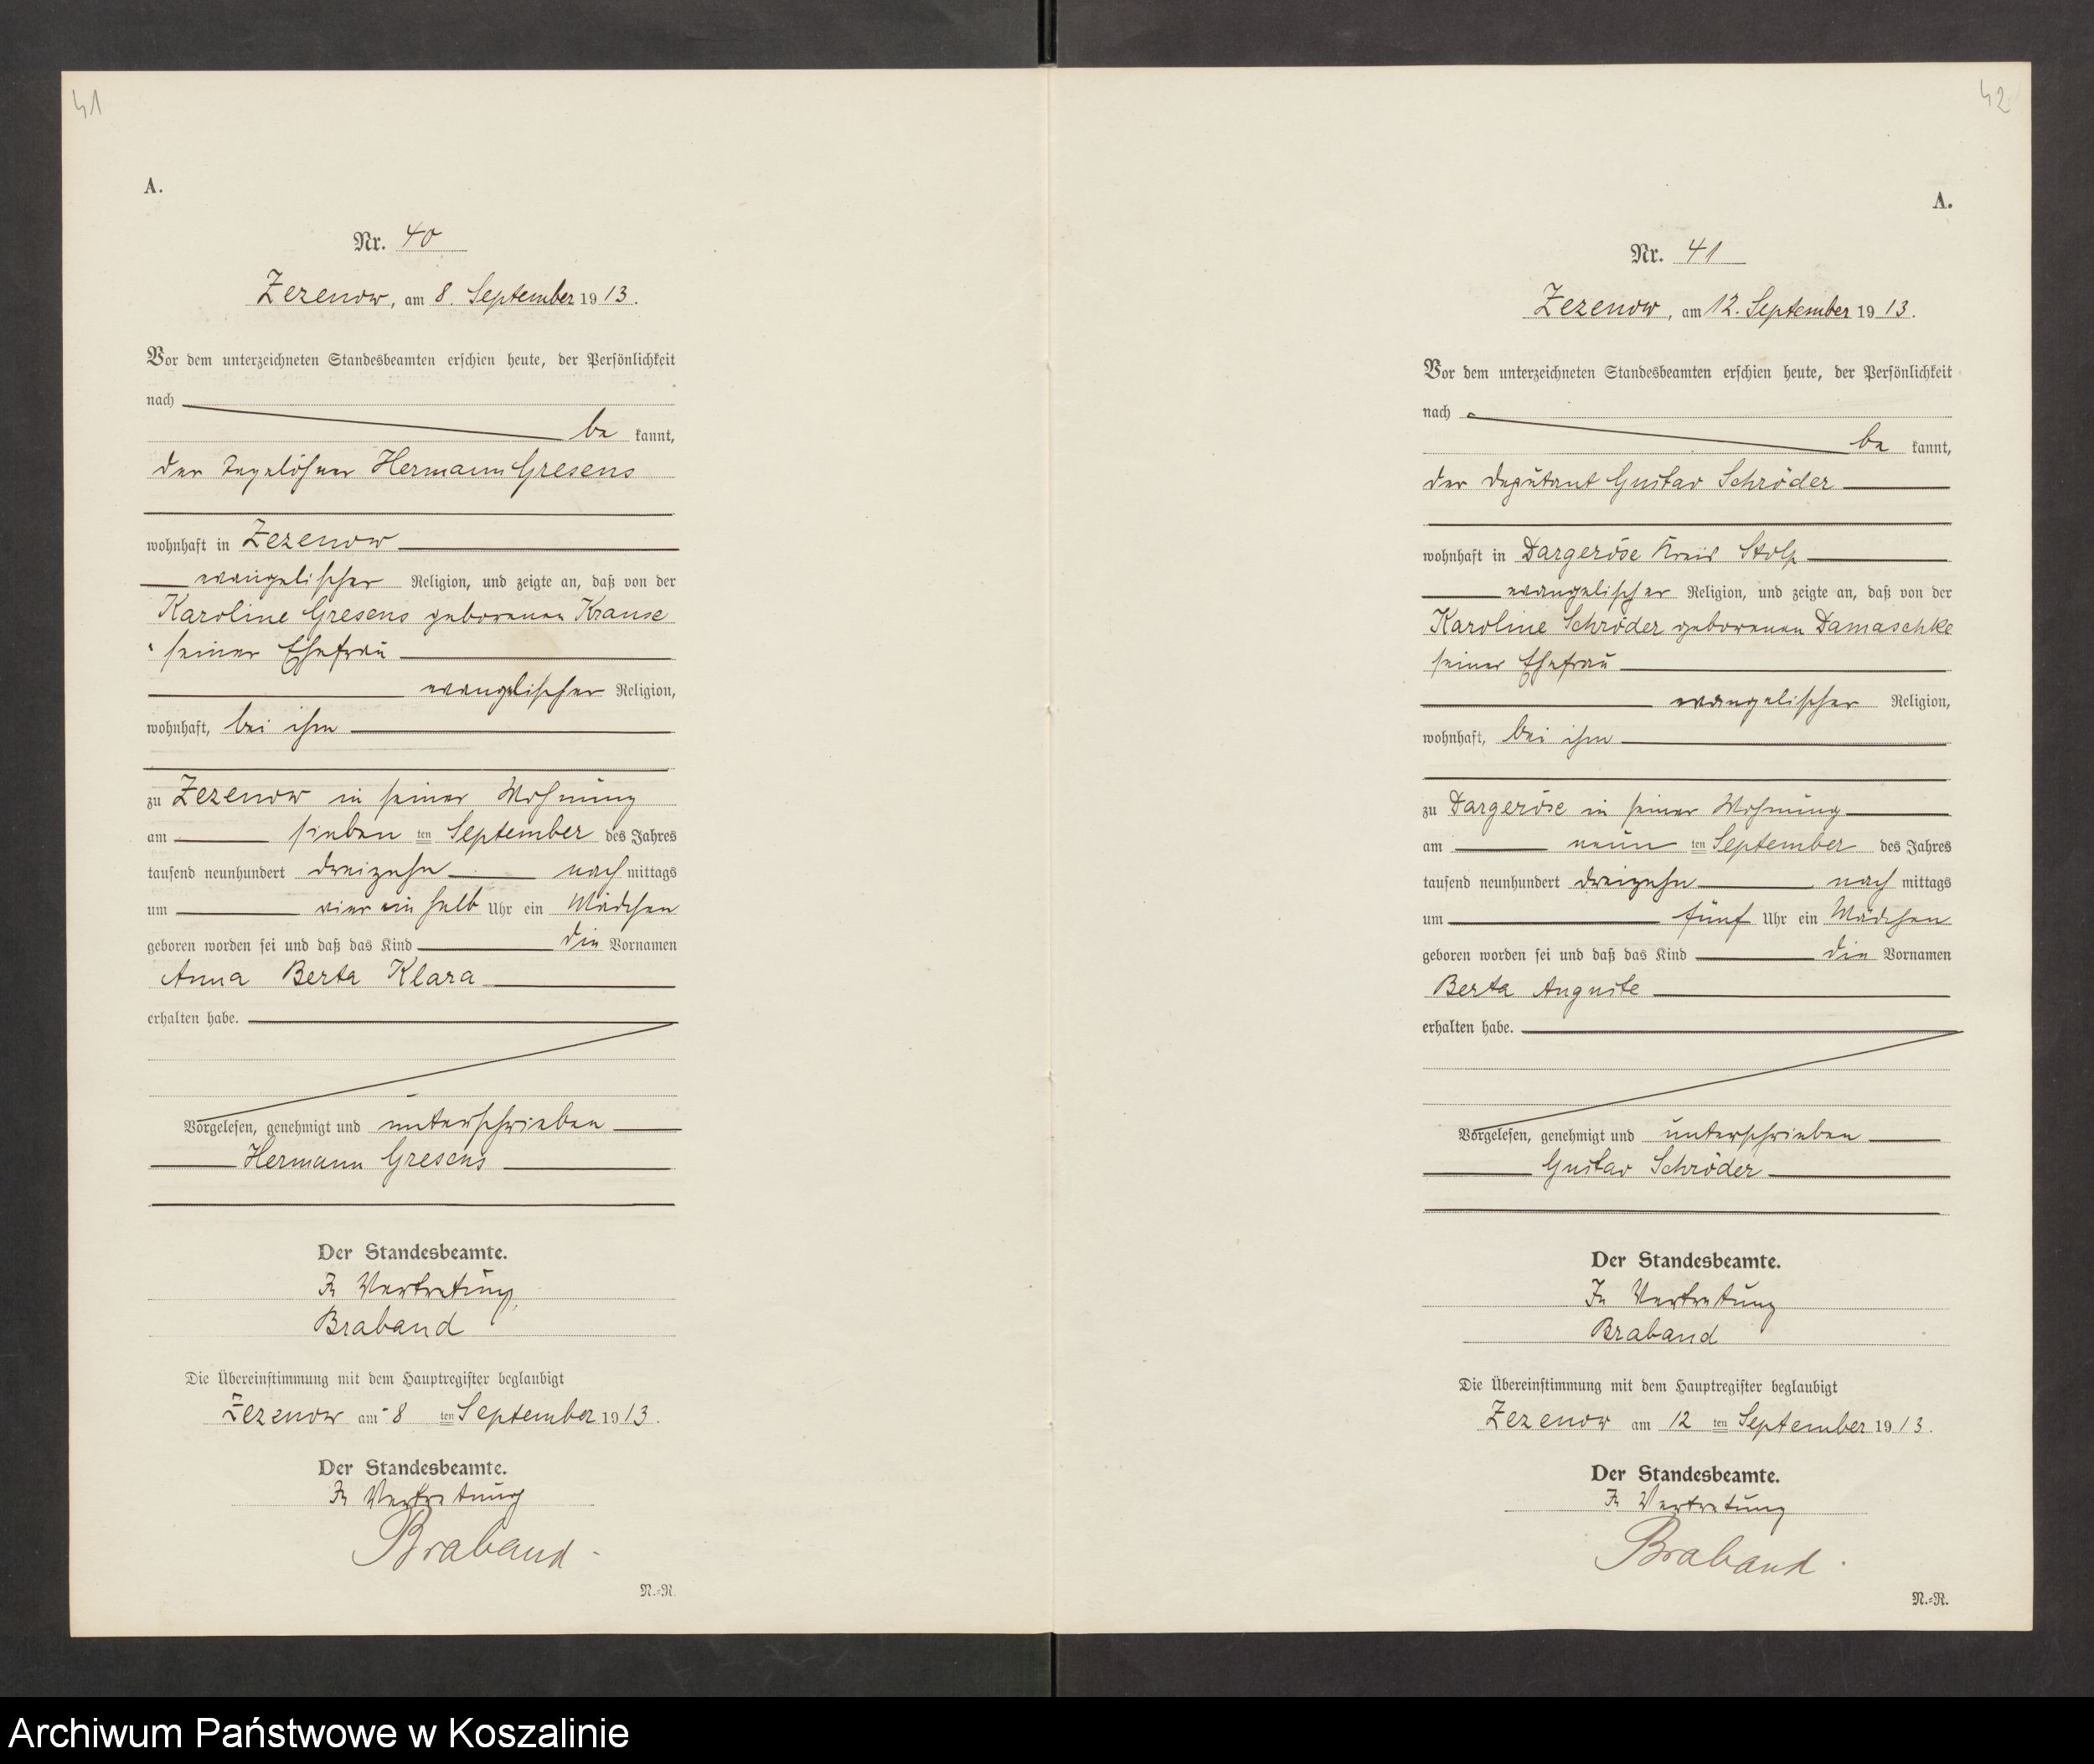 41
A.
Nr. 40
Zezenow, am 8. September 1913.
Vor dem unterzeichneten Standesbeamten erschien heute, der Persönlichkeit
nach
be kannt,
der Tagelöhner Hermann Gresens
wohnhaft in Zezenow
evangelischer Religion, und zeigte an, daß von der
Karoline Gresens geborenen Krause
seiner Ehefrau
evangelischer Religion,
wohnhaft, bei ihm
zu Zezenow in seiner Wohnung
am sieben ten September des Jahres
tausend neunhundert dreizehn nach mittags
um vier ein halb Uhr ein Mädchen
geboren worden sei und daß das Kind die Vornamen
Anna Berta Klara
erhalten habe.
Vorgelesen, genehmigt und unterschrieben
Hermann Gresens
Der Standesbeamte.
In Vertretung
Braband
Die Übereinstimmung mit dem Hauptregister beglaubigt
Zezenow am 8 ten September 1913.
Der Standesbeamte.
In Vertretung
Braband.
N.=R.
42
A.
Nr. 41
Zezenow, am 12. September 1913.
Vor dem unterzeichneten Standesbeamten erschien heute, der Persönlichkeit
nach
be kannt,
der Deputant Gustav Schröder
wohnhaft in Dargeröse Kreis Stolp
evangelischer Religion, und zeigte an, daß von der
Karoline Schröder geborenen Damaschke
seiner Ehefrau
evangelischer Religion,
wohnhaft, bei ihm
zu Dargeröse in seiner Wohnung
am neun ten September des Jahres
tausend neunhundert dreizehn nach mittags
um fünf Uhr ein Mädchen
geboren worden sei und daß das Kind die Vornamen
Berta Auguste
erhalten habe.
Vorgelesen, genehmigt und unterschrieben
Gustav Schröder
Der Standesbeamte.
In Vertretung
Braband
Die Übereinstimmung mit dem Hauptregister beglaubigt
Zezenow am 12 ten September 1913.
Der Standesbeamte.
In Vertretung
Braband.
N.=R.
Archiwum Państwowe w Koszalinie